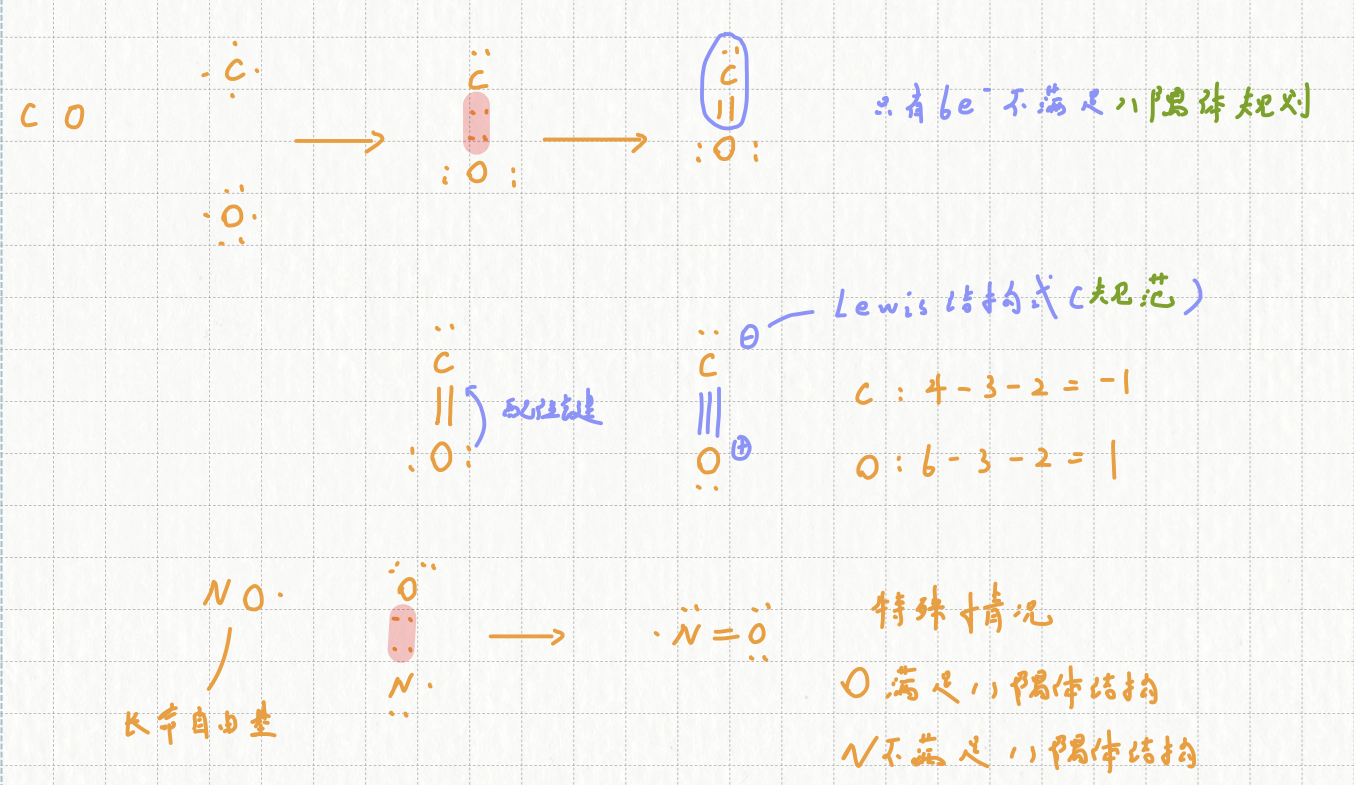 CO
C
O
C
O
C
O
只有6e⁻不满足八隅体规则
C
O
配位键
C ⊖
O ⊕
Lewis 结构式(规范)
C : 4 - 3 - 2 = -1
O : 6 - 3 - 2 = 1
NO·
长寿自由基
O
N·
·N=O
特殊情况
O 满足八隅体结构
N 不满足八隅体结构